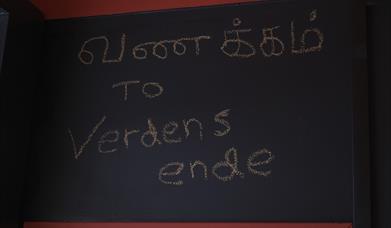 வணக்கம்
To
Verdens
ende